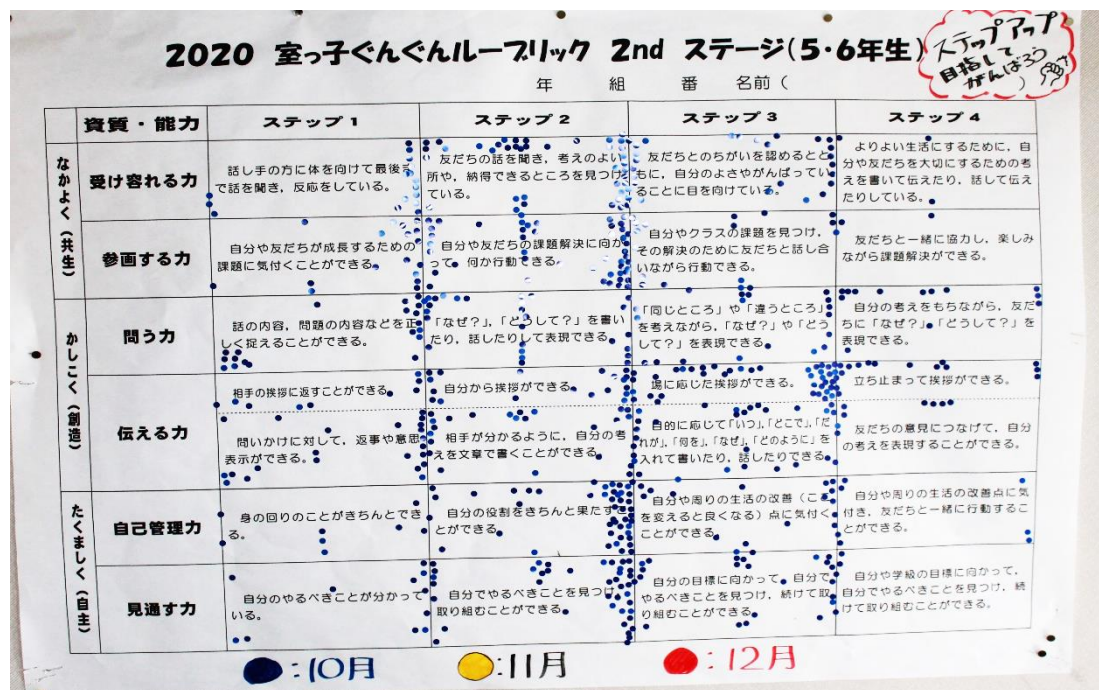 2020 室っ子ぐんぐんルーブリック 2nd ステージ(5・6年生)
ステップアップ
目指して
がんばろう
年 組 番 名前( )
資質・能力 ステップ1 ステップ2 ステップ3 ステップ4
なかよく(共生)
受け容れる力
話し手の方に体を向けて最後ま
で話を聞き,反応をしている。
友だちの話を聞き,考えのよい
所や,納得できるところを見つけ
ている。
友だちとのちがいを認めるとと
もに,自分のよさやがんばってい
ることに目を向けている。
よりよい生活にするために,自
分や友だちを大切にするための考
えを書いて伝えたり,話して伝え
たりしている。
参画する力
自分や友だちが成長するための
課題に気付くことができる。
自分や友だちの課題解決に向か
って,何か行動できる。
自分やクラスの課題を見つけ,
その解決のために友だちと話し合
いながら行動できる。
友だちと一緒に協力し,楽しみ
ながら課題解決ができる。
かしこく(創造)
問う力
話の内容,問題の内容などを正
しく捉えることができる。
「なぜ?」,「どうして?」を書い
たり,話したりして表現できる。
「同じところ」や「違うところ」
を考えながら,「なぜ?」や「どう
して?」を表現できる。
自分の考えをもちながら,友だ
ちに「なぜ?」,「どうして?」を
表現できる。
伝える力
相手の挨拶に返すことができる。
自分から挨拶ができる。
場に応じた挨拶ができる。
立ち止まって挨拶ができる。
問いかけに対して,返事や意思
表示ができる。
相手が分かるように,自分の考
えを文章で書くことができる。
目的に応じて「いつ」,「どこで」,「だ
れが」,「何を」,「なぜ」,「どのように」を
入れて書いたり,話したりできる。
友だちの意見につなげて,自分
の考えを表現することができる。
たくましく(自主)
自己管理力
身の回りのことがきちんとでき
る。
自分の役割をきちんと果たすこ
とができる。
自分や周りの生活の改善(ここ
を変えると良くなる)点に気付く
ことができる。
自分や周りの生活の改善点に気
付き,友だちと一緒に行動するこ
とができる。
見通す力
自分のやるべきことが分かって
いる。
自分でやるべきことを見つけ,
取り組むことができる。
自分の目標に向かって,自分で
やるべきことを見つけ,続けて取
り組むことができる。
自分や学級の目標に向かって,
自分でやるべきことを見つけ,続
けて取り組むことができる。
:10月 :11月 :12月